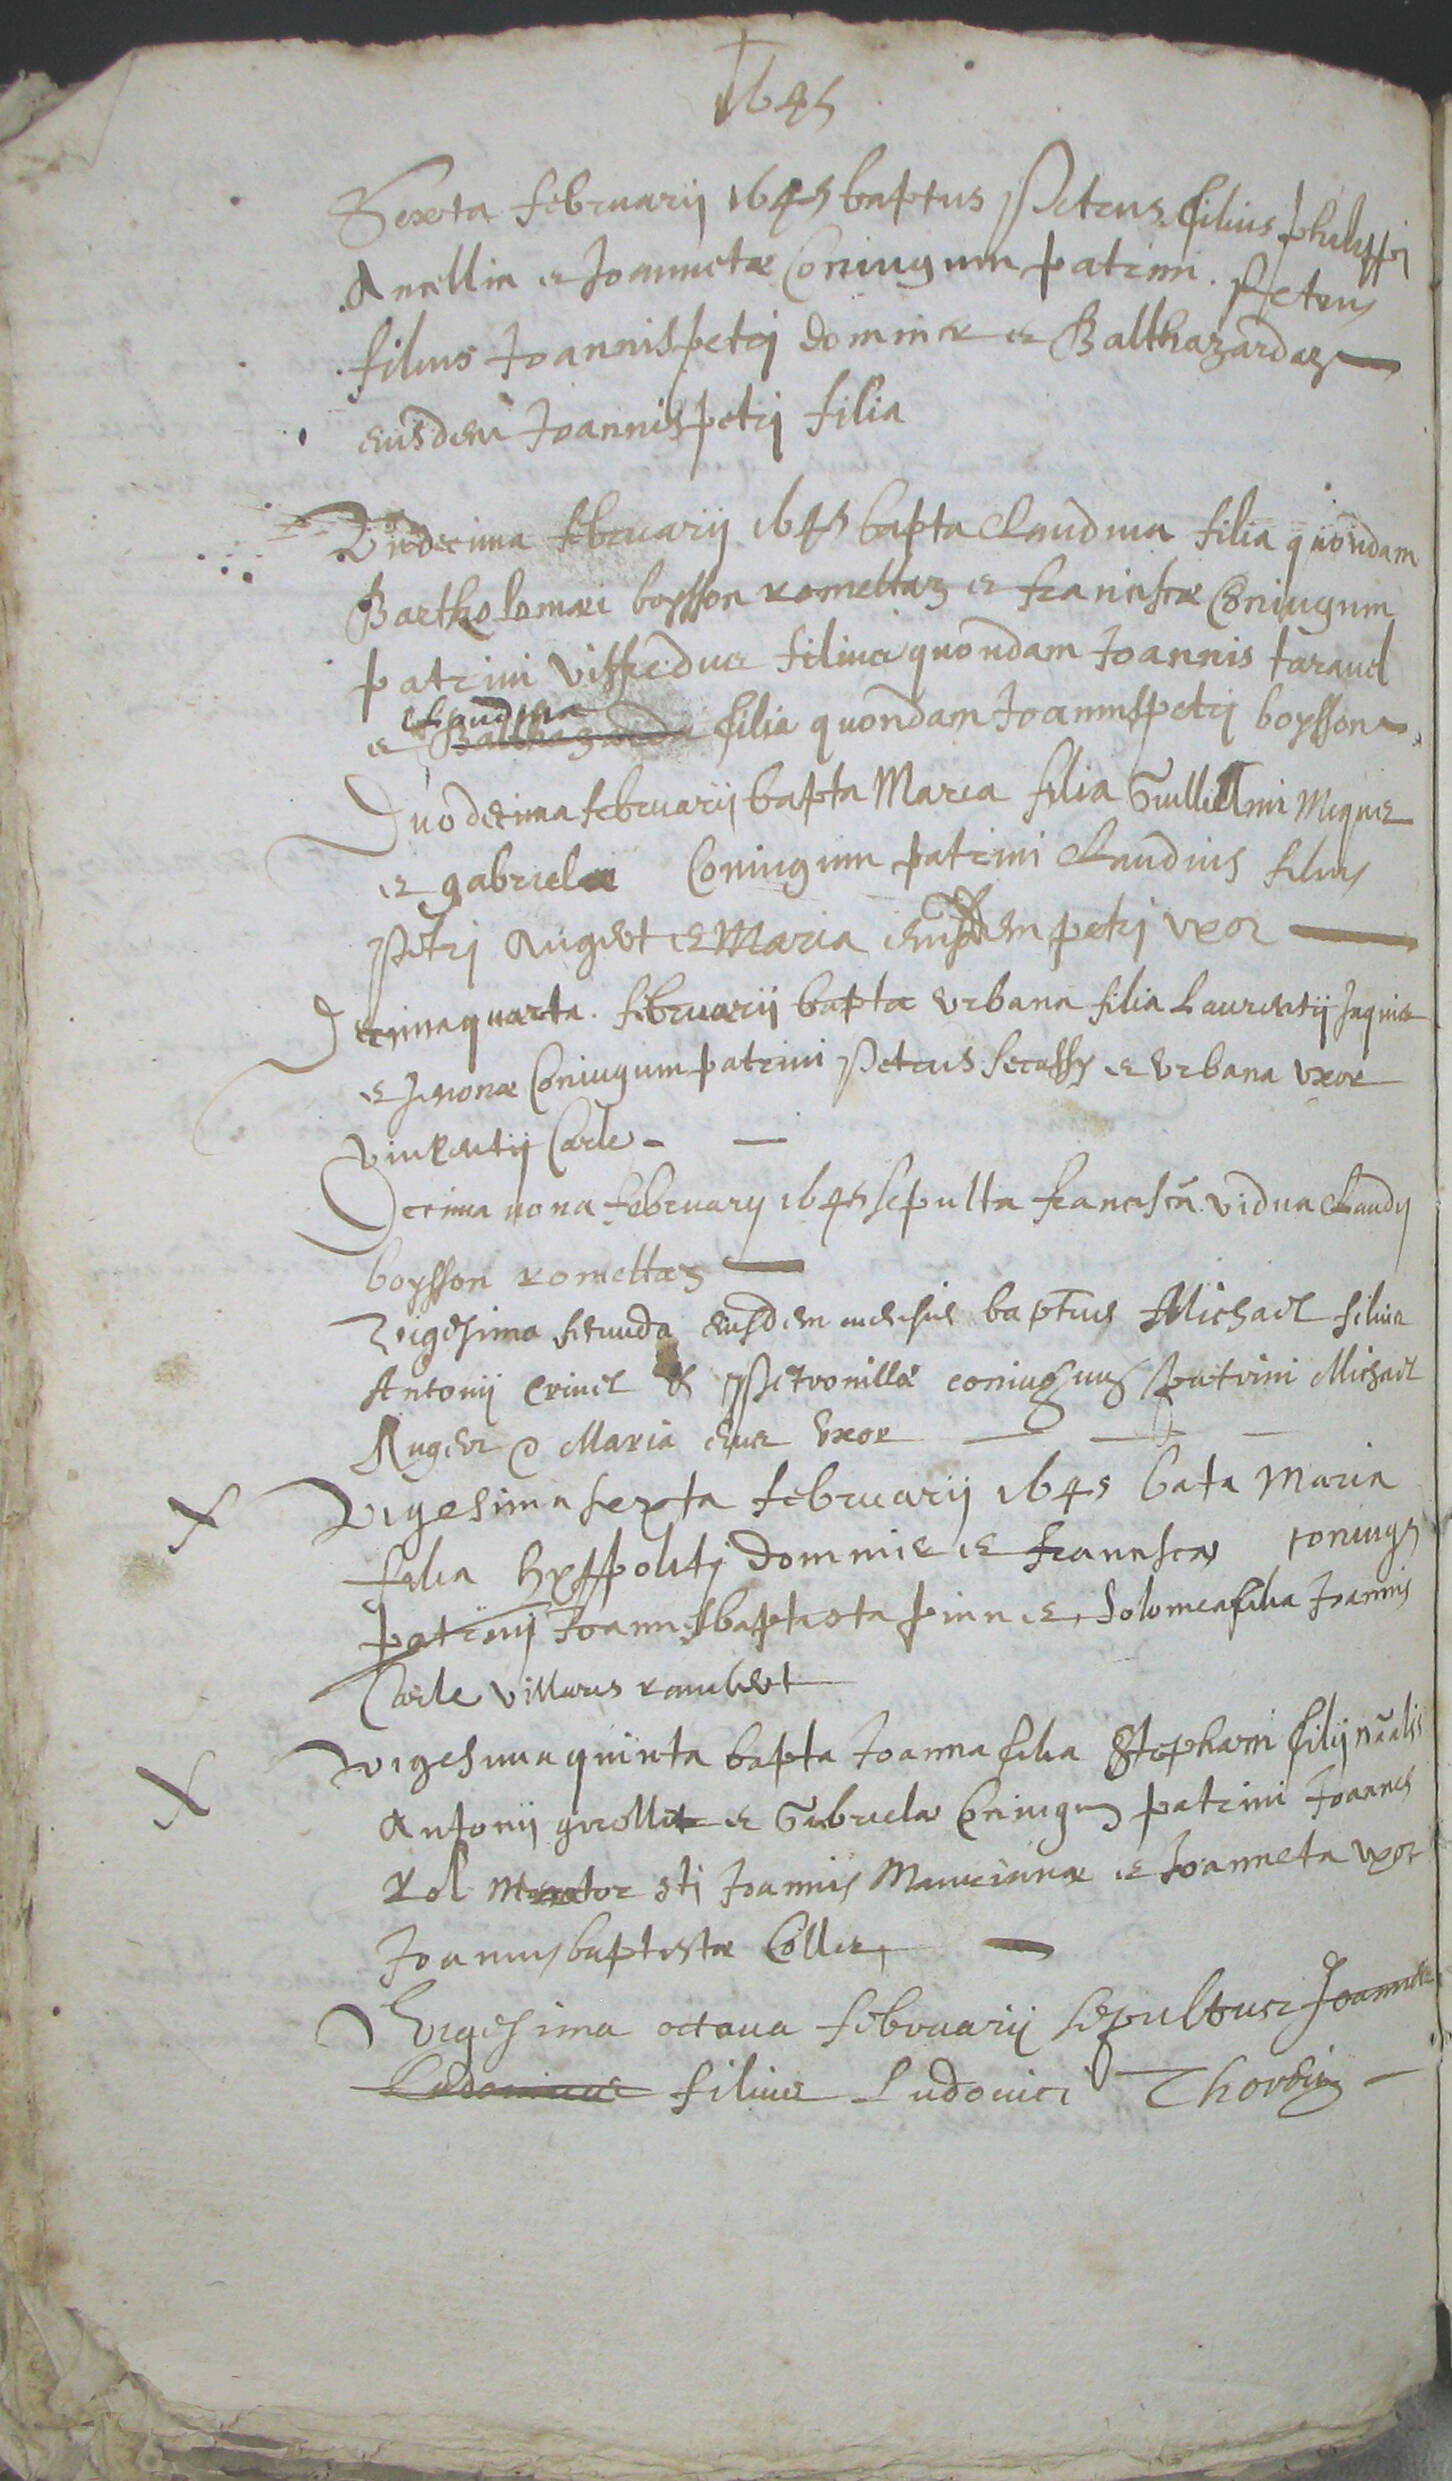 1645
Sexta februarij 1645 baptus Petrus filius phelippi
Anellin et Joannetæ Coniugum patrini Petrus
filius Joannispetri Domine et Balthazarda
eiusdem Joannispetri filia
Undecima februarij 1645 bapta Claudina filia quondam
Bartholomæi boysson romettaz et franciscæ Coniugum
patrini Viffredus filius quondam Joannis taravel
et Claudina Balthazarda filia quondam Joannispetri boysson
Duodecima februarij bapta Maria filia Guillielmi Miquet
et gabrielæ Coniugum patrini Claudius filius
Petri Auget et Maria eiusdem petri uxor
Decimaquarta februarij bapta Urbana filia Laurentij Jaquier
et Jenonæ Coniugum patrini Petrus Secalfy et Urbana Uxor
Vincentij Carle
Decima nona februarij 1645 sepulta francisca vidua Claudij
boysson romettaz
Vigesima secunda eiusdem mensis baptus Michael filius
Antonij Crivel & Petronillæ coniugum patrini Michael
Auget et Maria eius Uxor
Vigesima sexta februarij 1645 bata Maria
filia hyppoliti Domine et franciscæ coniug
patrini Joannesbaptista pinn et Solomea filia Joannis
Carle Villaris rambert
Vigesima quinta bapta Joanna filia Stephani filij nãalis
Antonij grollet et Gabrielæ Coniugum patrini Joannes
Rol sti Joannis Mauriannæ et Joanneta uxor
Joannisbaptistæ Collet
Vigesima octava februarij sepultus Joannes
Ludovicus filius Ludovici Thorbin